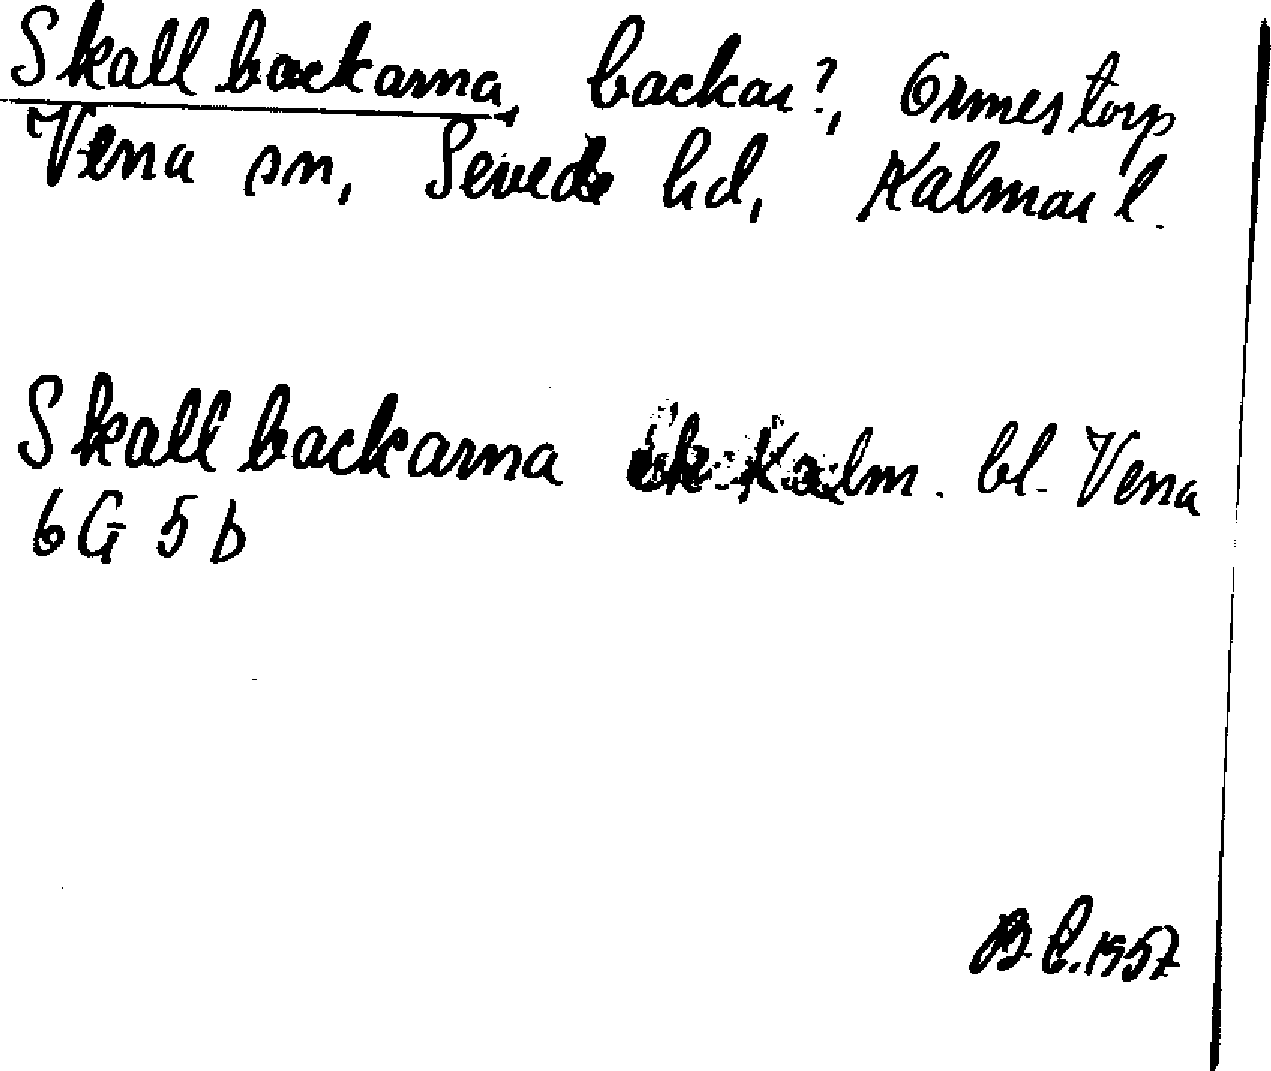 Skallbackarna, backar?, Ormestorp
Vena sn, Sevede hd, Kalmar l.
Skallbackarna ek Kalm. bl. Vena
6G 5b
B.L. 1957